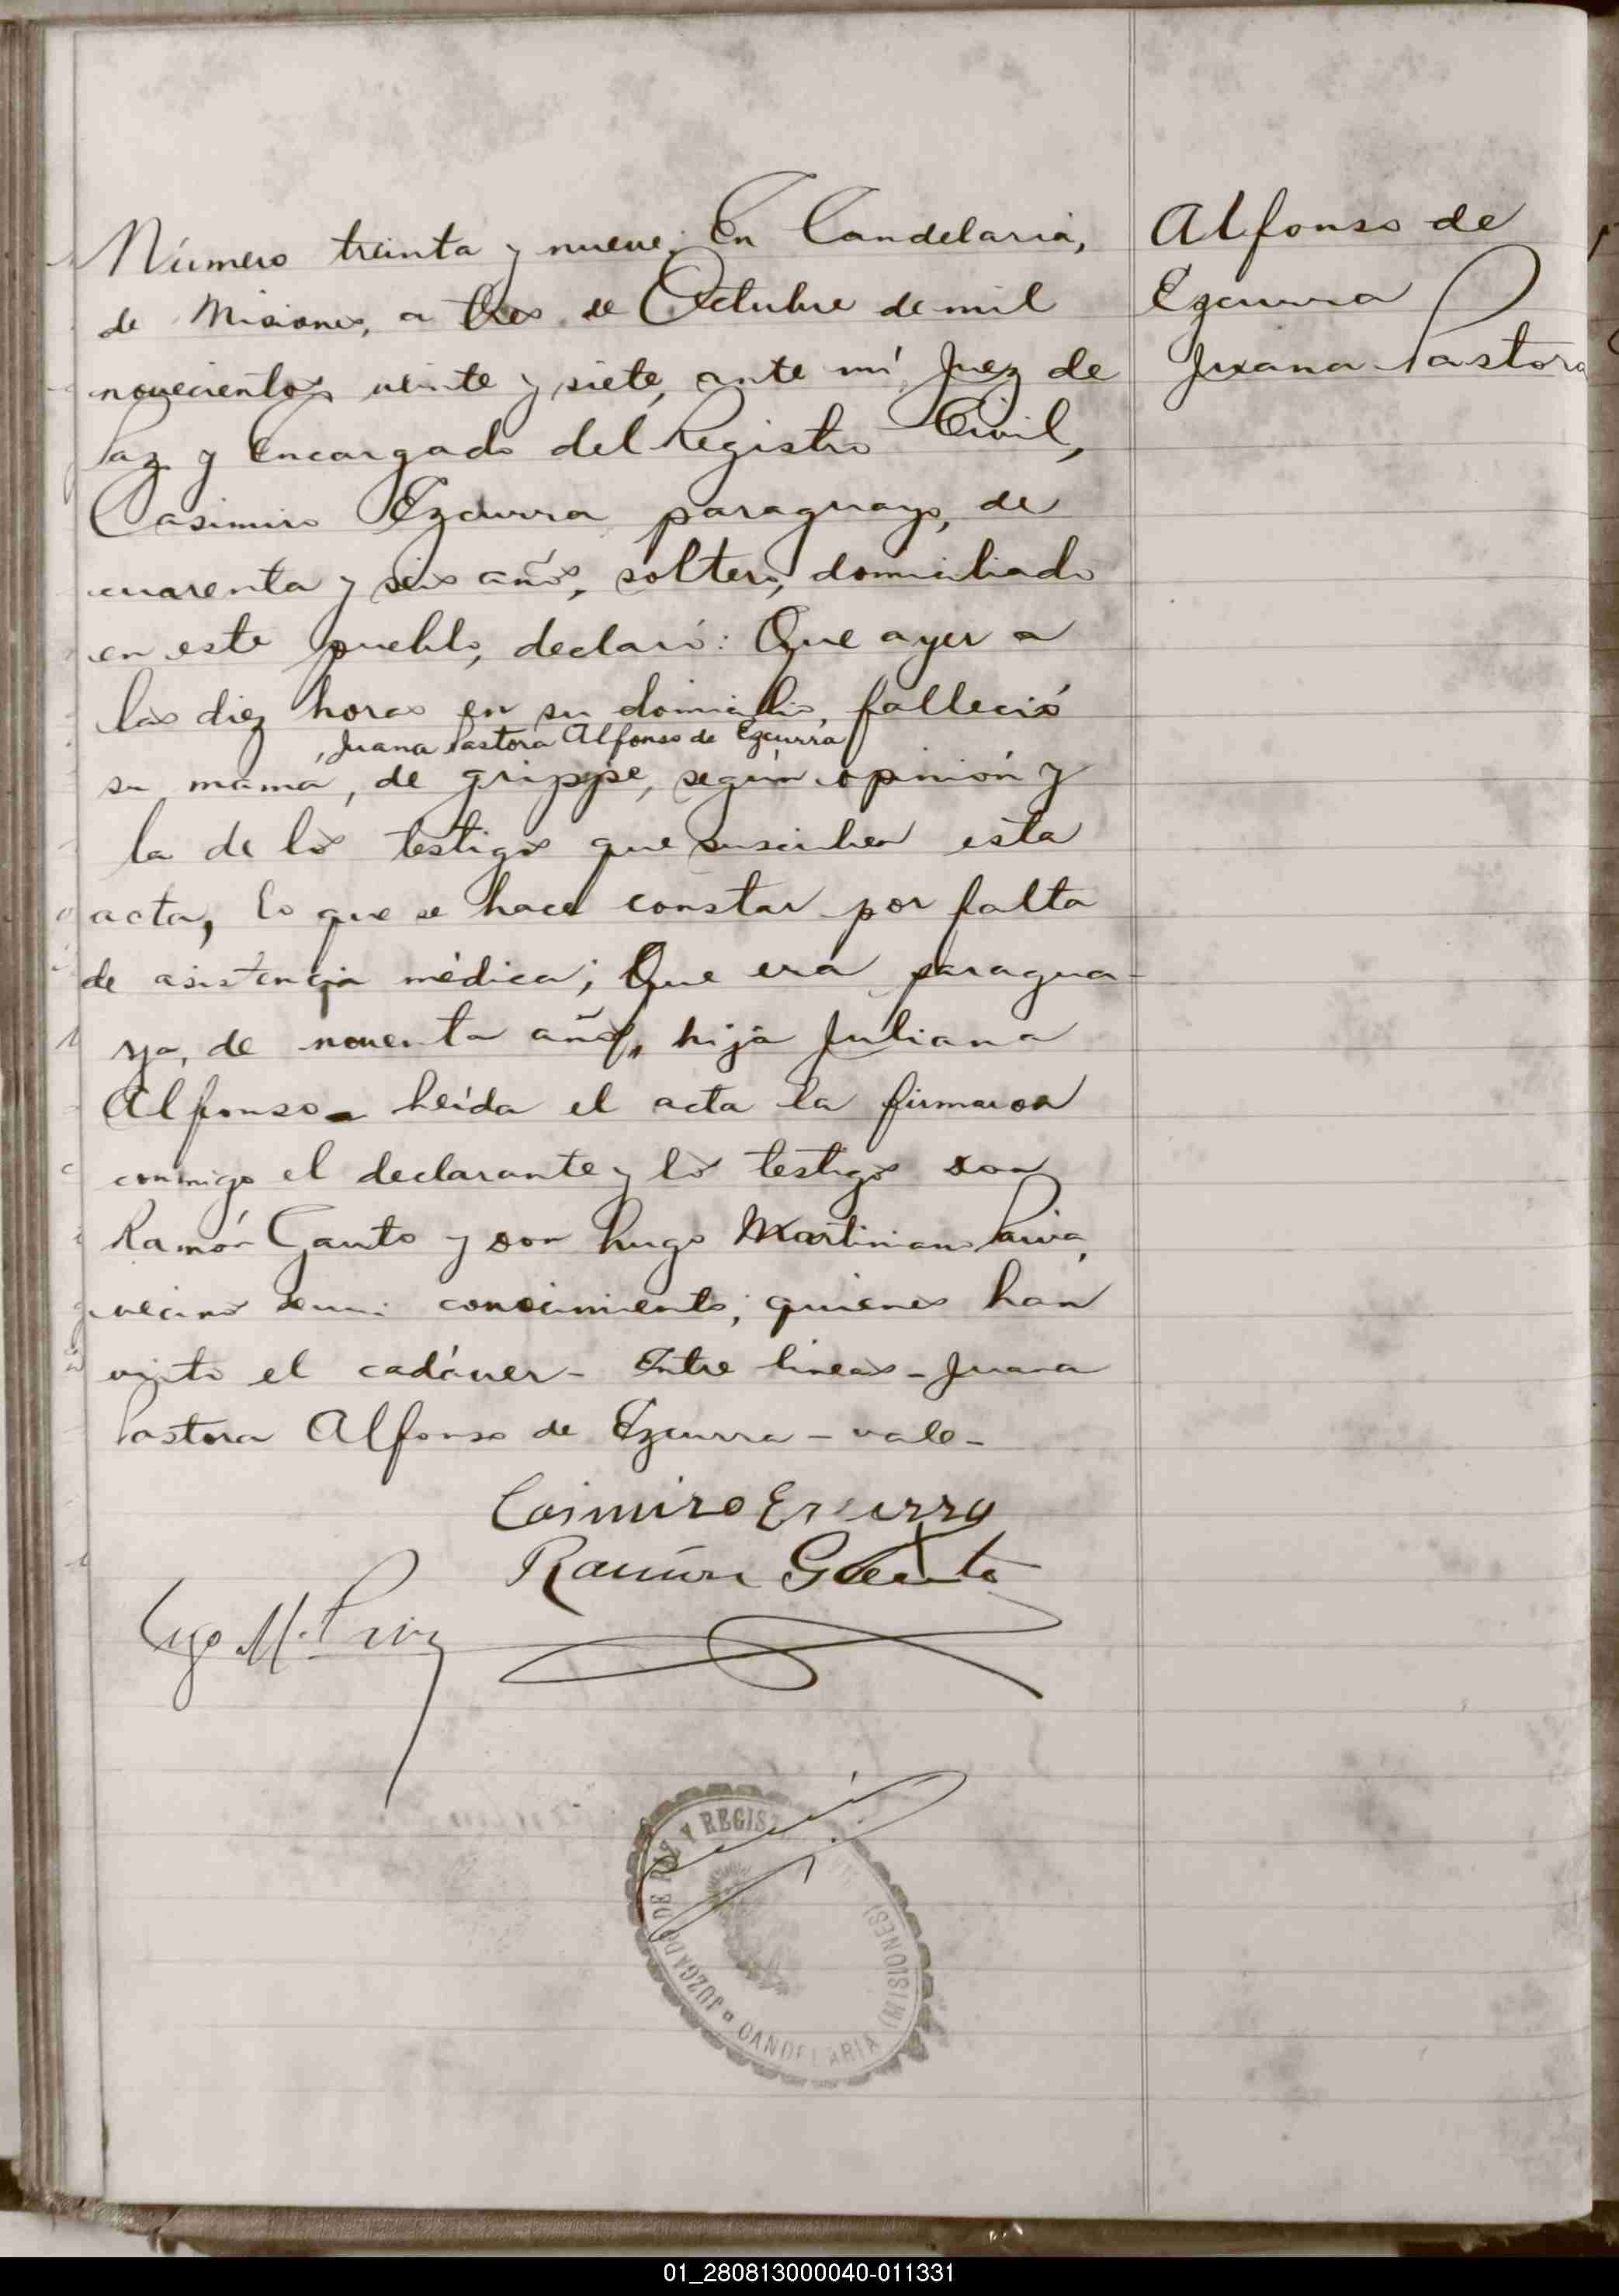 Número treinta y nueve. En Candelaria,
de Misiones, a tres de Octubre de mil
novecientos veinte y siete, ante mí Juez de
Paz y Encargado del Registro Civil,
Casimiro Ezcurra paraguayo, de
cuarenta y seis años, soltero, domiciliado
en este pueblo, declaró: Que ayer a
las diez horas en su domicilio, falleció
, Juana Pastora Alfonso de Ezcurra
su mamá, de grippe, según opinión y
la de los testigos que suscriben esta
acta, lo que se hace constar por falta
de asistencia médica; Que era paragua-
ya, de noventa años, hija Juliana
Alfonso - Leída el acta la firmaron
conmigo el declarante y los testigos don
Ramón Gauto y don Lugo Martiniano Paiva,
vecinos de mi conocimiento; quienes han
visto el cadáver - Entre líneas - Juana
Pastora Alfonso de Ezcurra - vale -
Casimiro Ezcurra
Ramón Gauto
Lugo M.
Alfonso de
Ezcurra
Juana Pastora
JUZGADO DE PAZ Y REGIS
CANDELARIA (MISIONES)
01_280813000040-011331